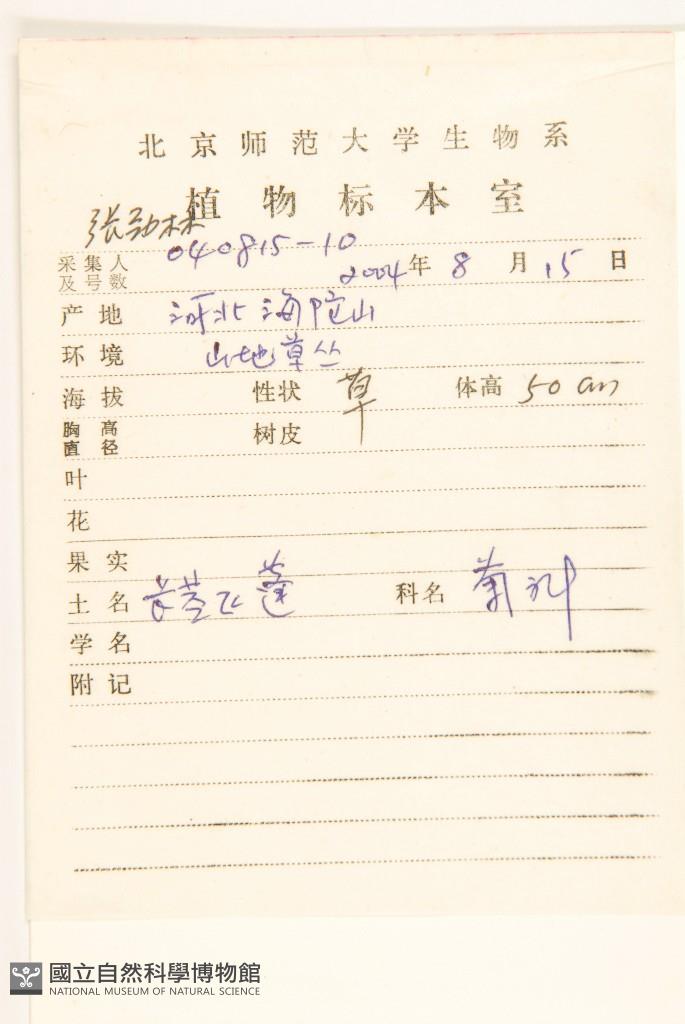 北京师范大学生物系
植物标本室
张劲林
采集人及号数 040815-10 2004年8月15日
产地 河北海陀山
环境 山地草丛
海拔 性状 草 体高 50 cm
胸高直径 树皮
叶
花
果实
土名 长茎飞蓬 科名 菊科
学名
附记
國立自然科學博物館
NATIONAL MUSEUM OF NATURAL SCIENCE